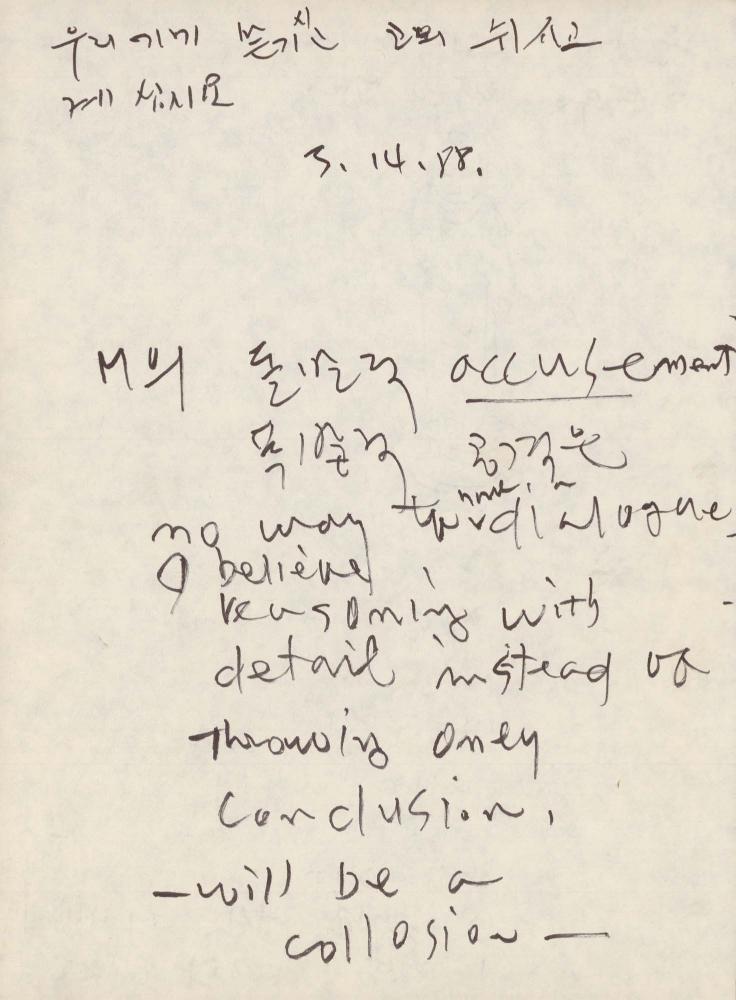 우리에게 맡기신 고뫼 쉬시고
계십시요
3. 14. 88.
M의 돌발적 accusement
폭발적 공격은
no way to dialogue
I believe
reasoning with
detail instead of
throwing onely
conclusion.
—will be a
collosion —